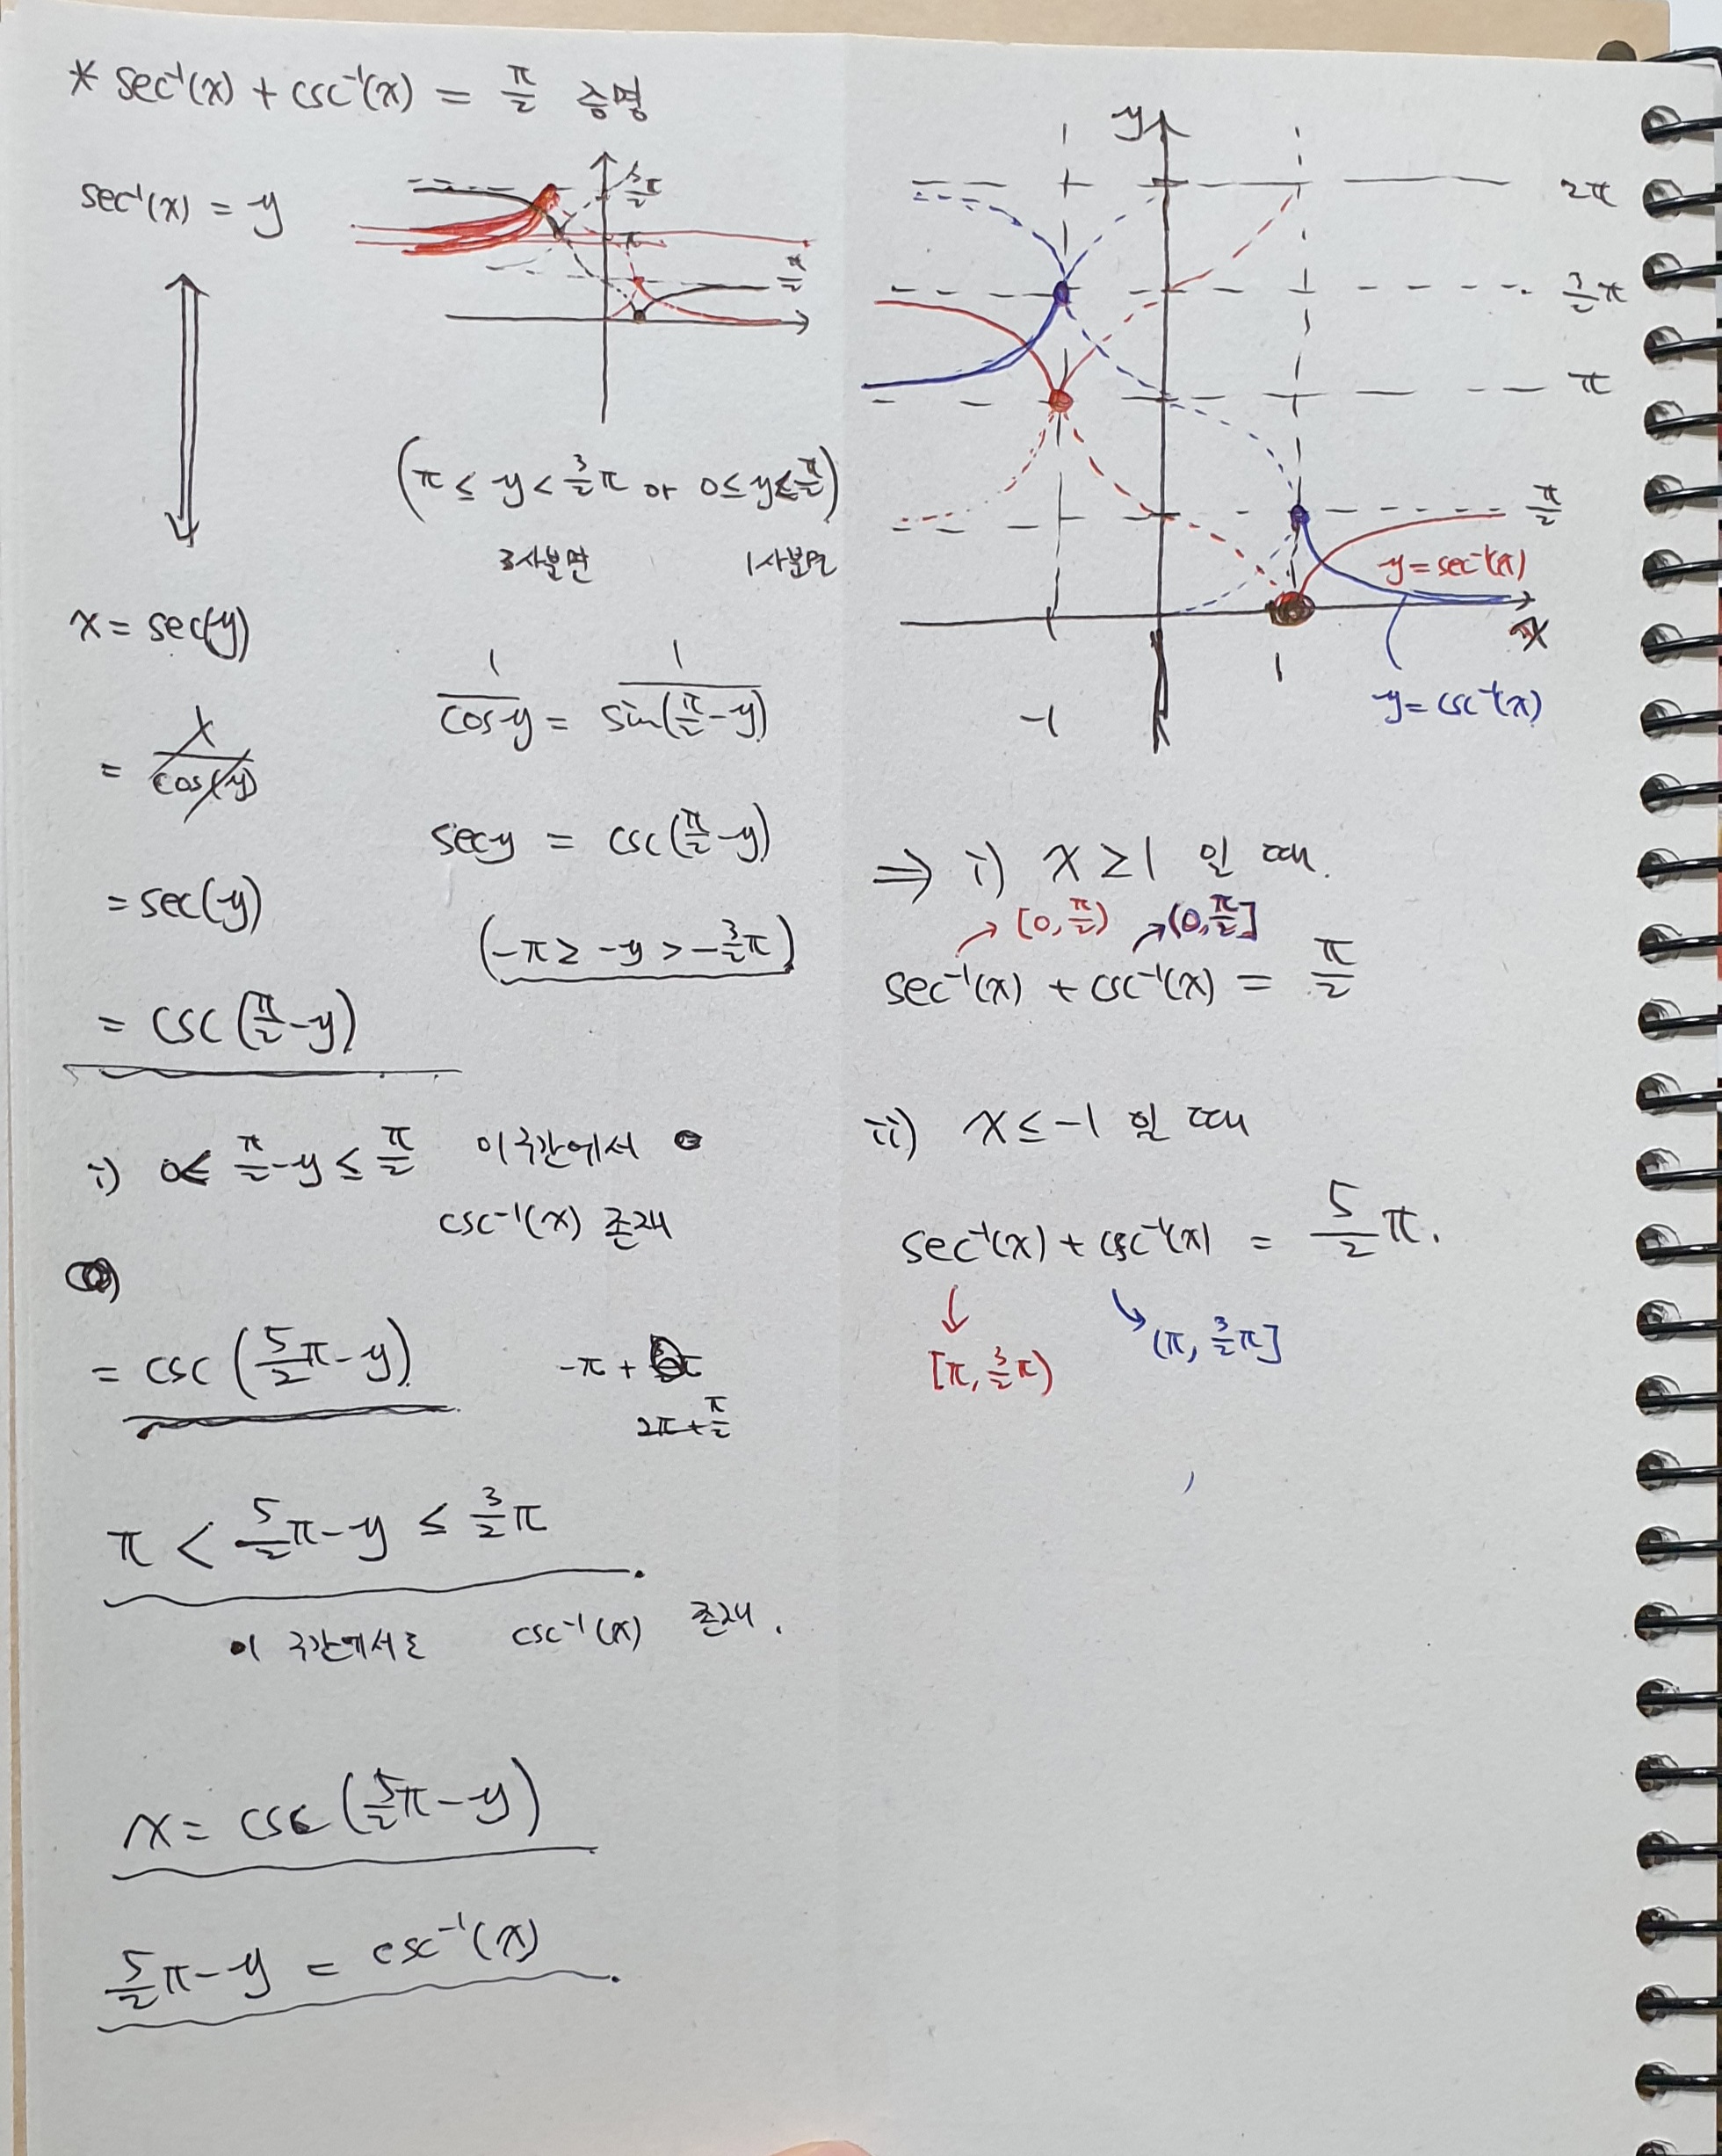 * sec⁻¹(x) + csc⁻¹(x) = π/2 증명
sec⁻¹(x) = y
3π/2
π
π/2
(π ≤ y < 3/2 π or 0 ≤ y < π/2)
3사분면 1사분면
x = sec(y)
= 1/cos(y)
= sec(y)
= csc(π/2 - y)
1/cos y = 1/sin(π/2 - y)
sec y = csc(π/2 - y)
(-π ≥ -y > -3/2 π)
i) 0 < π/2 - y ≤ π/2 이 구간에서
csc⁻¹(x) 존재
= csc(5/2 π - y)
-π +
2π + π/2
π < 5/2 π - y ≤ 3/2 π
이 구간에서는 csc⁻¹(x) 존재.
x = csc(5/2 π - y)
5/2 π - y = csc⁻¹(x)
y
2π
3/2 π
π
π/2
y = sec⁻¹(x)
x
-1
1
y = csc⁻¹(x)
⇒ i) x ≥ 1 일 때.
[0, π/2) (0, π/2]
sec⁻¹(x) + csc⁻¹(x) = π/2
ii) x ≤ -1 일 때
sec⁻¹(x) + csc⁻¹(x) = 5/2 π.
[π, 3/2 π) (π, 3/2 π]